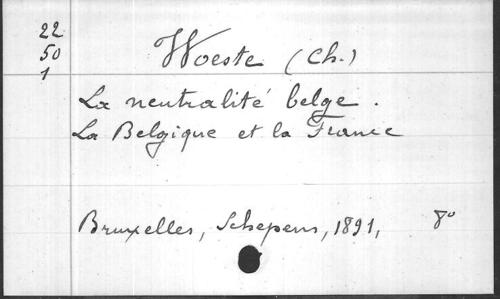 22
50
1
Woeste (Ch.)
La neutralité belge.
La Belgique et la France
Bruxelles, Schepens, 1891, 8°